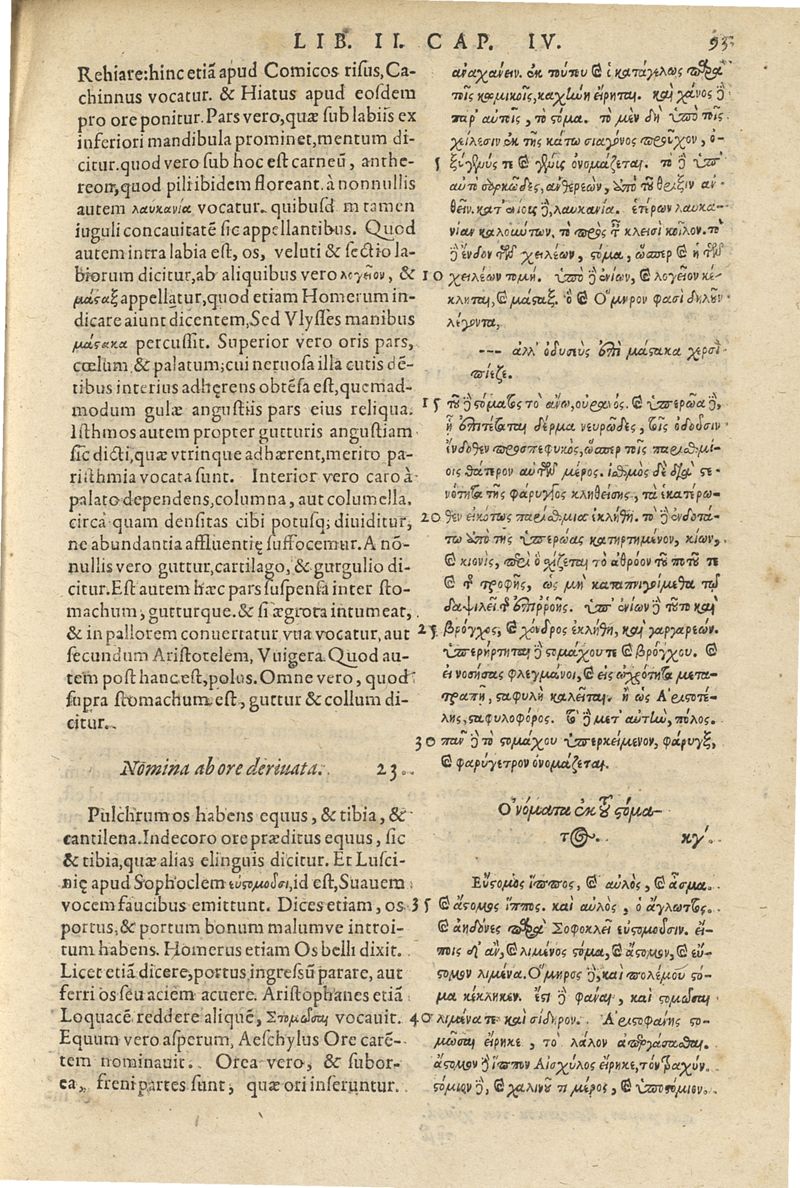 LIB. II. CAP. IV. 93
Rehiare: hinc etiã apud Comicos risus, Ca-
chinnus vocatur. & Hiatus apud eosdem
pro ore ponitur. Pars vero, quæ sub labiis ex
inferiori mandibula prominet, mentum di-
citur. quod vero sub hoc est carneũ, anthe-
reon, quod pili ibidem floreant. à nonnullis
autem λαυκανία vocatur. quibusd m tamen
iuguli concauitatẽ sic appellantibus. Quod
autem intra labia est, os, veluti & sectio la-
biorum dicitur, ab aliquibus vero λογεῖον, &
μάςαξ appellatur, quod etiam Homerum in-
dicare aiunt dicentem, Sed Vlysses manibus
μάςακα percussit. Superior vero oris pars,
cœlum, & palatum; cui neruosa illa cutis dẽ-
tibus interius adhęrens obtẽsa est, quemad-
modum gulæ angustiis pars eius reliqua.
Isthmos autem propter gutturis angustiam
sic dicti, quæ vtrinque adhærent, merito pa-
risthmia vocata sunt. Interior vero caro à
palato dependens, columna, aut columella,
circa quam densitas cibi potusq; diuiditur,
ne abundantia affluentię suffocemur. A nõ-
nullis vero guttur, cartilago, & gurgulio di-
citur. Est autem hæc pars suspensa inter sto-
machum, gutturque. & si ægrota intumeat,
& in pallorem conuertatur vua vocatur, aut
secundum Aristotelem, Vuigera. Quod au-
tem post hanc est, polus. Omne vero, quod
supra stomachum est, guttur & collum di-
citur.
Nomina ab ore deriuata. 23.
Pulchrum os habens equus, & tibia, &
cantilena. Indecoro ore præditus equus, sic
& tibia, quæ alias elinguis dicitur. Et Lusci-
nię apud Sophoclem εὐςομοῦσι, id est, Suauem
vocem faucibus emittunt. Dices etiam, os
portus, & portum bonum malumve introi-
tum habens. Homerus etiam Os belli dixit.
Licet etiã dicere, portus ingressũ parare, aut
ferri os seu aciem acuere. Aristophanes etiã
Loquacẽ reddere aliquẽ, Στομῶσαι vocauit.
Equum vero asperum, Aeschylus Ore carẽ-
tem nominauit. Orea vero, & subor-
ea, freni partes sunt, quæ ori inseruntur.
ἀναχάνειν. ἐκ τούτου καὶ ὁ κατάγελως παρὰ
τοῖς κωμικοῖς, καχὴν εἴρηται. καὶ χάνος δὲ
παρ' αὐτοῖς, τὸ ςόμα. τὸ μὲν δὴ ὑπὸ τοῖς
χείλεσιν ἐκ τῆς κάτω σιαγόνος προῦχον, ὀ-
5
αὐτὸ σαρκῶδες, ἀνθερεὼν, ἀπὸ τοῦ θριξὶν ἀν-
θεῖν. κατ' ἐνίους δὲ, λαυκανία. ἑτέρων λαυκα-
νίαν καλούντων, τὸ πρὸς τῇ κλεισὶ κοῖλον. τὸ
δὲ ἔνδον τῶν χειλέων, ςόμα, ὥσπερ καὶ ἡ τῶν
10 χειλέων τομή. ὑπὸ δὲ ἐνίων, καὶ λογεῖον κέ-
κληται, καὶ μάςαξ. ὃ καὶ Ὅμηρον φασὶ δηλοῦν
λέγοντα,
--- ἀλλ' ὀδυσεὺς ἐπὶ μάςακα χερσὶ
πίεζε.
15 τοῦ δὲ ςόματος τὸ ἄνω, οὐρανὸς. καὶ ὑπερῴα δὲ,
ᾗ ἐπιτέταται δέρμα νευρῶδες, τοῖς ὀδοῦσιν
ἔνδοθεν προσπεφυκὸς, ὥσπερ τοῖς παρισθμί-
οις θάτερον αὐτῶν μέρος. ἰσθμὸς δὲ διὰ ςε-
νότητα τῆς φάρυγγος κληθείσης, τὰ ἑκατέρω-
20 θεν εἰκότως παρίσθμια ἐκλήθη. τὸ δὲ ἐνδοτά-
τω ἀπὸ τῆς ὑπερῴας κατηρτημένον, κίων,
καὶ κιονὶς, περὶ ὃ σχίζεται τὸ ἀθρόον τοῦ ποτοῦ τε
καὶ τῆς τροφῆς, ὡς μὴ καταπνιγοίμεθα τῷ
δαψιλεῖ τῆς ἐπιρροῆς. ὑπ' ἐνίων δὲ τοῦτο καὶ
25 βρόγχος, καὶ χόνδρος ἐκλήθη, καὶ γαργαρεών.
ὑπερήρτηται δὲ ςομάχου τε καὶ βρόγχου. καὶ
εἰ νοσήσας φλεγμάνοι, καὶ εἰς ὠχρότητα μετα-
τραπῇ, ςαφυλὴ καλεῖται. ἢ ὡς Ἀριςοτέ-
λης, ςαφυλοφόρος. τὸ δὲ μετ' αὐτὴν, πόλος.
30 πᾶν δὲ τὸ ςομάχου ὑπερκείμενον, φάρυγξ,
καὶ φαρύγετρον ὀνομάζεται.
Ὀνόματα ἐκ τοῦ ςόμα-
τος. κγ'.
Εὔςομος ἵππος, καὶ αὐλὸς, καὶ ἆσμα.
35 καὶ ἄςομος ἵππος. καὶ αὐλὸς, ὁ ἄγλωττος.
καὶ ἀηδόνες παρὰ Σοφοκλεῖ εὐςομοῦσιν. εἴ-
ποις δ' ἂν, καὶ λιμένος ςόμα, καὶ ἄςομον, καὶ εὔ-
ςομον λιμένα. Ὅμηρος δὲ, καὶ πολέμου ςό-
μα κέκληκεν. ἔςι δὲ φάναι, καὶ ςομῶσαι
40 λιμένα τε καὶ σίδηρον. Ἀριςοφάνης ςο-
μῶσαι εἴρηκε, τὸ λάλον ἀπεργάσασθαι.
ἄςομον δὲ ἵππον Αἰσχύλος εἴρηκε, τὸν τραχύν.
ςόμιον δὲ, καὶ χαλινοῦ τι μέρος, καὶ ὑποςόμιον.